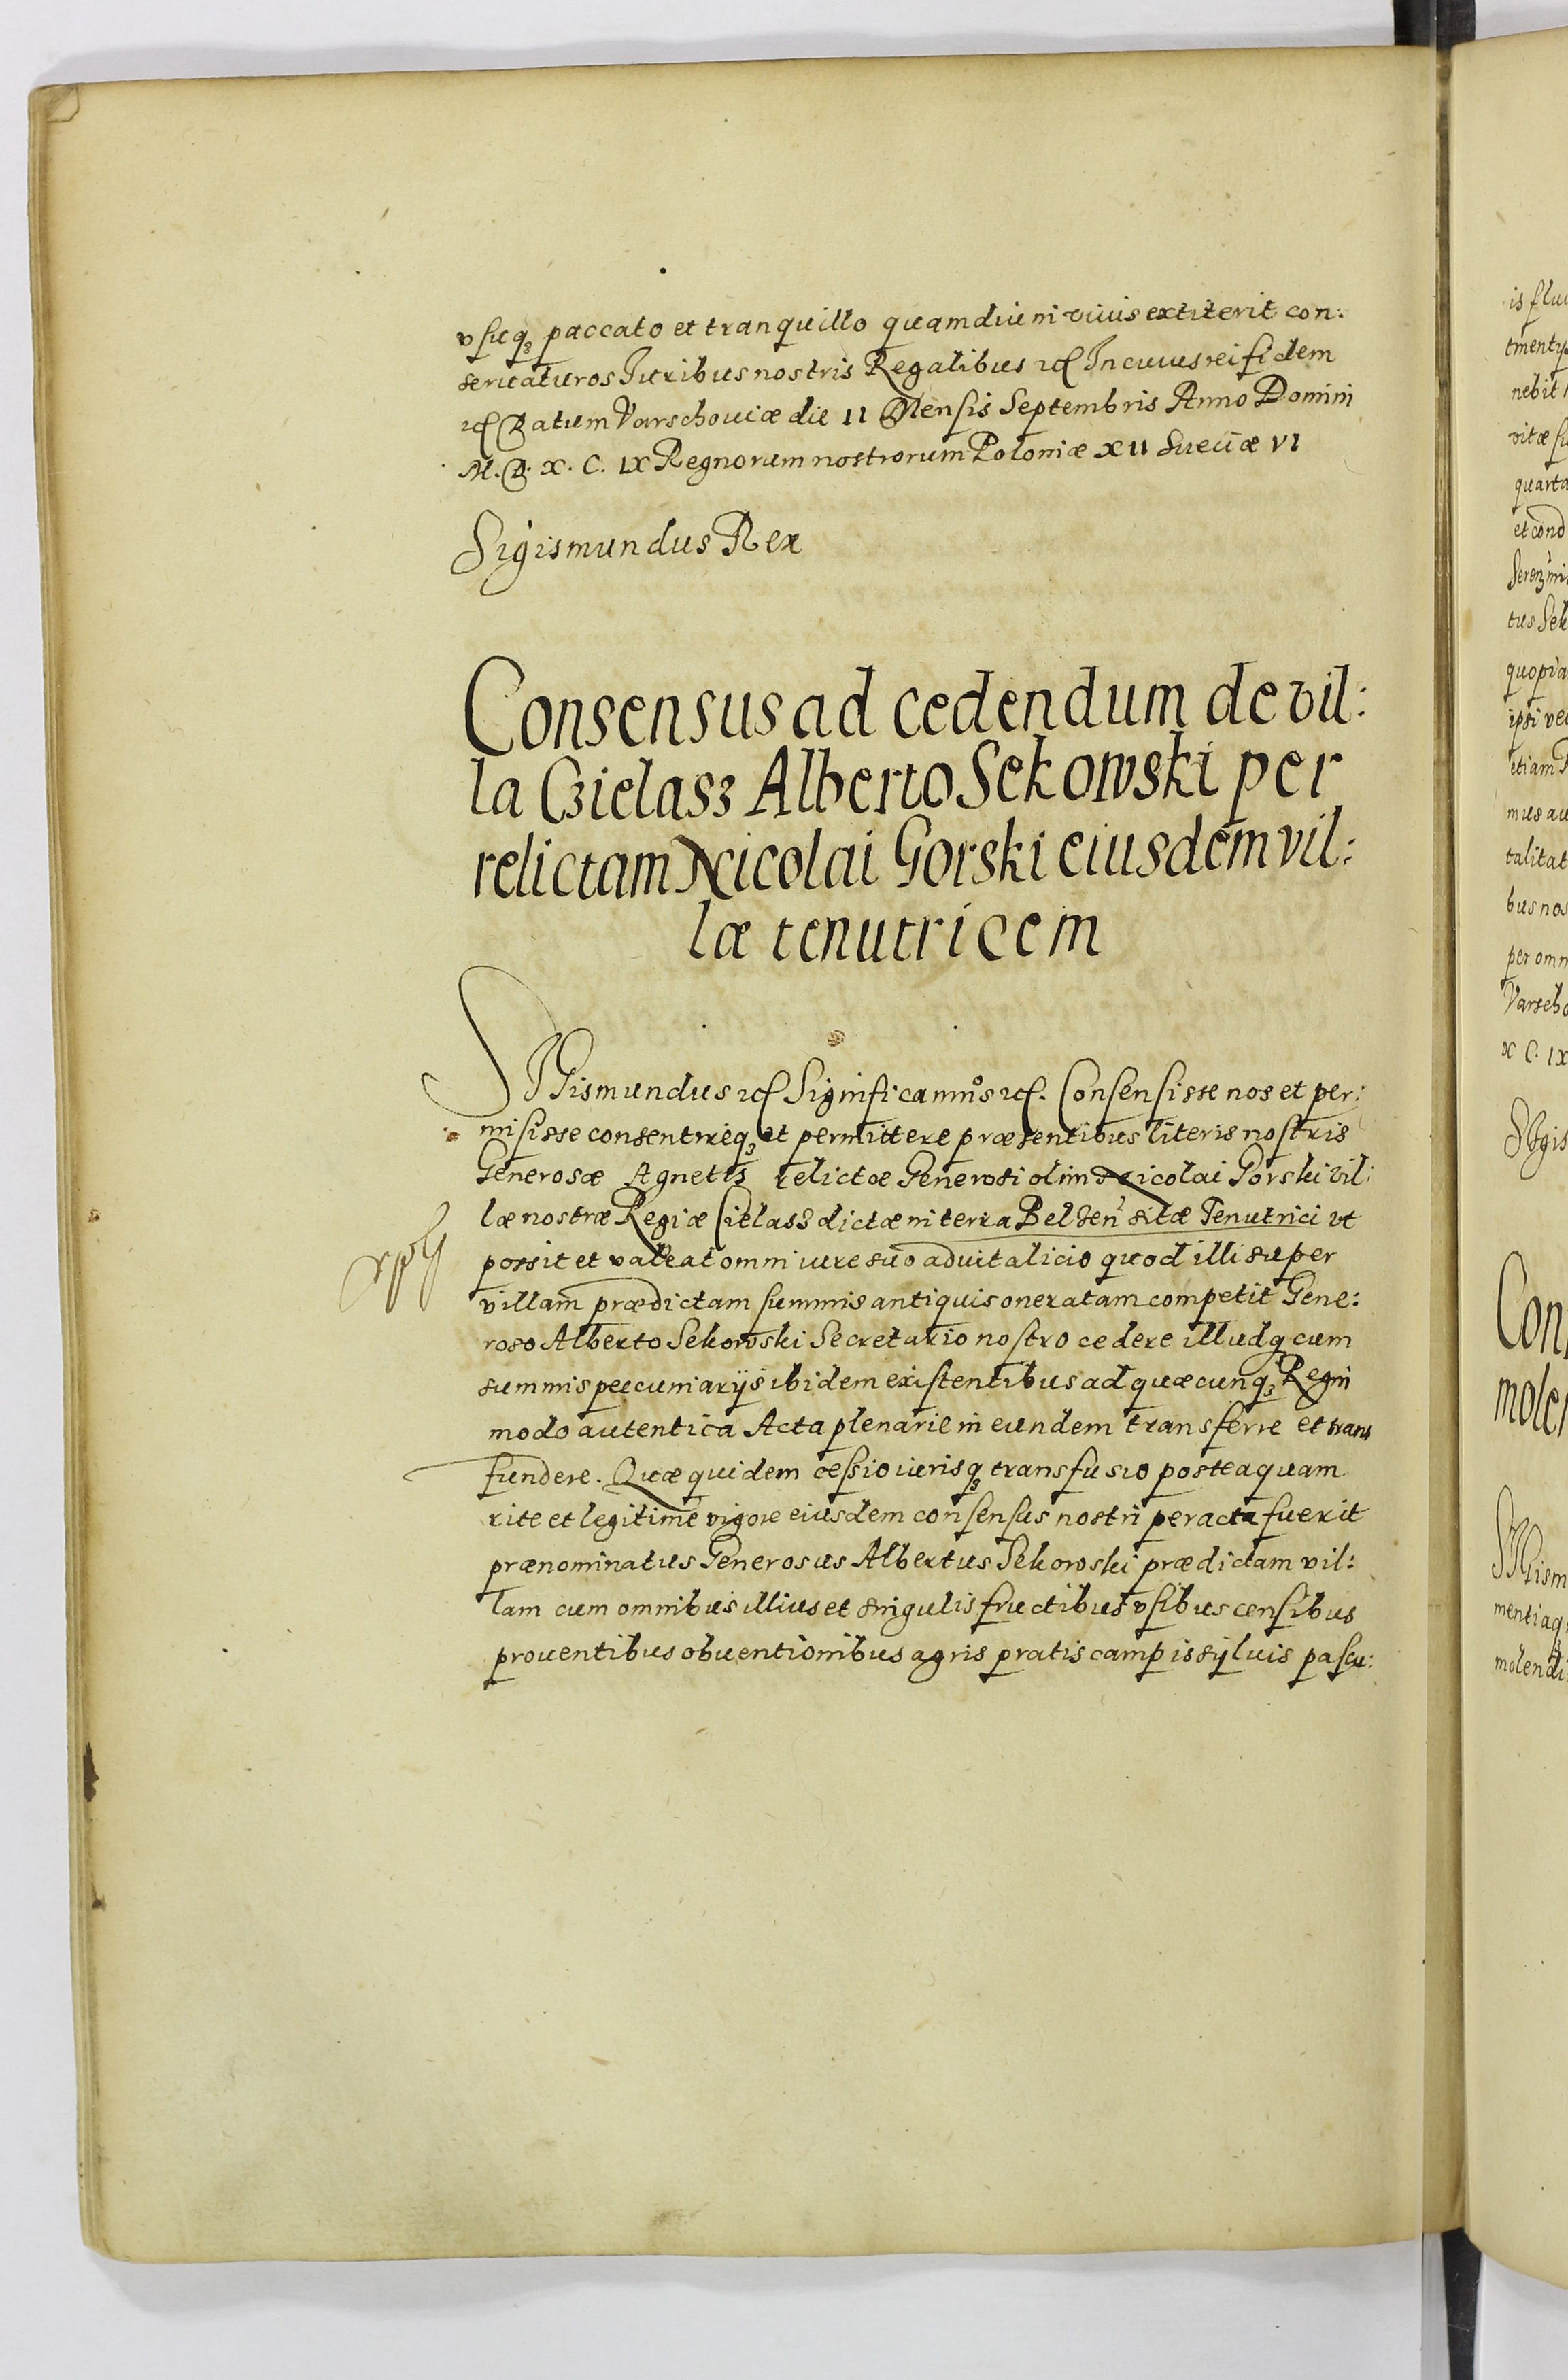 vsuq₃ paccato et tranquillo quamdiu in viuis extiterit con:
seruaturos Iuribus nostris Regalibus etc In cuius rei fidem
etc Datum Varschouiæ die 11 Mensis Septembris Anno Domini
M. D. X. C. IX Regnorum nostrorum Poloniæ XII Sueciæ VI
Sigismundus Rex
Consensus ad cedendum de vil:
la Czielass Alberto Sekowski per
relictam Nicolai Gorski eiusdem vil:
læ tenutricem
SIGismundus etc Significamus etc. Consensisse nos et per:
misisse consentireq₃ et permittere præsentibus literis nostris
Generosæ Agnetis relictæ Generosi olim Nicolai Gorski vil:
læ nostræ Regiæ Cielass dictæ in terra Belzen sitæ Tenutrici vt
possit et valeat omni iure suo aduitalicio quod illi super
villam prædictam summis antiquis oneratam competit Gene:
roso Alberto Sekowski Secretario nostro cedere illudq cum
summis peecuniarijs ibidem existentibus ad quæcunq₃ Regni
modo autentica Acta plenarie in eundem transferre et trans
fundere. Quæ quidem cessio iurisq₃ transfusio posteaquam
rite et legitime vigore eiusdem consensus nostri peracta fuerit
prænominatus Generosus Albertus Sekowski prædictam vil:
lam cum omnibus illius et singulis fructibus vsibus censibus
prouentibus obuentionibus agris pratis campis syluis pascu:
is flu
tmenty
nebit
vitæ su
quarta
et cond
tus Sek
ipsi ve
etiam
mus au
talitat
bus nos
per omn
Varscho
X C. IX
Sigis
Con
molen
SIGism
mentiaq₃
molendi